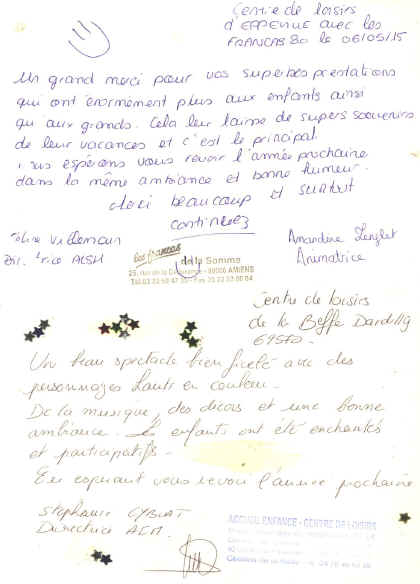 Centre de loisirs
d'EPPEVILLE avec les
FRANCAS 80 le 06/05/15
Un grand merci pour vos superbes prestations
qui ont énormement plus aux enfants ainsi
qu aux grands. Cela leur laisse de supers souvenirs
de leur vacances et c'est le principal.
espérons vous revoir l'année prochaine
dans la même ambiance et bonne humeur.
Merci beaucoup et surtout
continuez
Villemain
ALSH
Amandine Lenglet
Animatrice
les francas
de la Somme
80000 AMIENS
Centre de loisirs
de la Beffe Dardilly
69570.
Un beau spectacle bien ficelé avec des
personnages hauts en couleur.
De la musique, des décors et une bonne
ambiance. Les enfants ont été enchantés
et participatifs.
En espérant vous revoir l'année prochaine
Stéphanie
Directrice ACM.
ACCUEIL ENFANCE - CENTRE DE LOISIRS